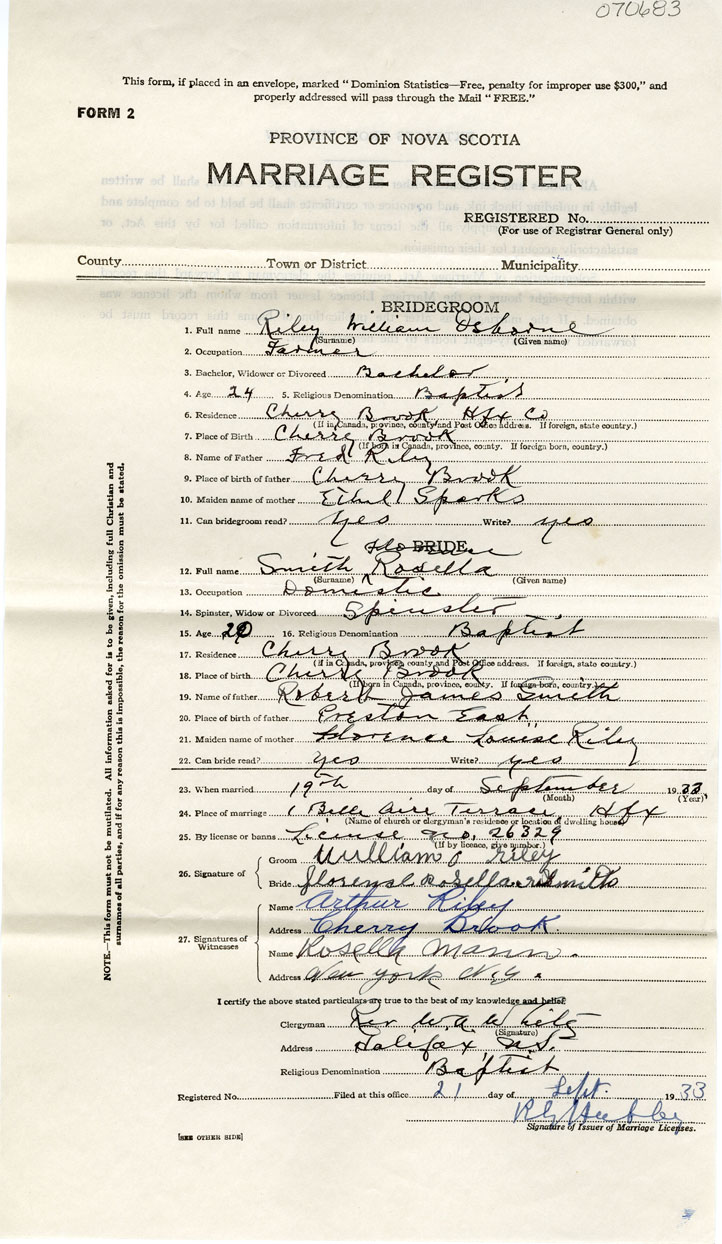 070683
This form, if placed in an envelope, marked "Dominion Statistics—Free, penalty for improper use $300," and
properly addressed will pass through the Mail "FREE."
FORM 2
PROVINCE OF NOVA SCOTIA
MARRIAGE REGISTER
REGISTERED No.
(For use of Registrar General only)
County Town or District Municipality
BRIDEGROOM
1. Full name Riley William Osborne
(Surname) (Given name)
2. Occupation Farmer
3. Bachelor, Widower or Divorced Bachelor
4. Age 24 5. Religious Denomination Baptist
6. Residence Cherry Brook, Hfx Co
(If in Canada, province, county and Post Office address. If foreign, state country.)
7. Place of Birth Cherry Brook
(If born in Canada, province, county. If foreign born, country.)
8. Name of Father Fred Riley
9. Place of birth of father Cherry Brook
10. Maiden name of mother Ethel Sparks
11. Can bridegroom read? yes Write? yes
BRIDE
12. Full name Smith Rosella
(Surname) (Given name)
13. Occupation Domistic
14. Spinster, Widow or Divorced Spinster
15. Age 20 16. Religious Denomination Baptist
17. Residence Cherry Brook
(If in Canada, province, county and Post Office address. If foreign, state country.)
18. Place of birth Cherry Brook
(If born in Canada, province, county. If foreign-born, country.)
19. Name of father Robert James Smith
20. Place of birth of father Preston East
21. Maiden name of mother Florence Louise Riley
22. Can bride read? yes Write? yes
23. When married 19th day of September 1933
(Month) (Year)
24. Place of marriage 1 Belle Aire Terrace, Hfx
(Name of church or clergyman's residence or location of dwelling house)
25. By license or banns License no. 26329
(If by licence, give number.)
26. Signature of
Groom William O Riley
Bride Rosella Smith
27. Signatures of Witnesses
Name Arthur Riley
Address Cherry Brook.
Name Rosella Mann.
Address New York N.Y.
I certify the above stated particulars are true to the best of my knowledge and belief.
Clergyman Rev W A White
(Signature)
Address Halifax N.S.
Religious Denomination Baptist
Registered No. Filed at this office 21 day of Sept. 1933
Signature of Issuer of Marriage Licenses.
[SEE OTHER SIDE]
NOTE.—This form must not be mutilated. All information asked for is to be given, including full Christian and
surnames of all parties, and if for any reason this is impossible, the reason for the omission must be stated.